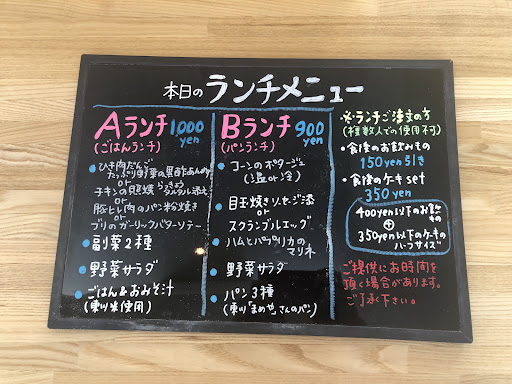 本日のランチメニュー
Aランチ 1,000 yen
(ごはんランチ)
・ひき肉だんご
たっぷり野菜の黒酢あんかけ
or
チキンの照焼 らっきょうタルタル添え
or
豚ヒレ肉のパン粉焼き
or
ブリのガーリックバターソテー
・副菜2種
・野菜サラダ
・ごはん&おみそ汁
(東川米使用)
Bランチ 900 yen
(パンランチ)
・コーンのポタージュ
(温or冷)
・目玉焼き ソーセージ添
or
スクランブルエッグ
・ハムとパプリカの
マリネ
・野菜サラダ
・パン3種
(東川「まめや」さんのパン)
※ランチご注文の方
(複数人での使用不可)
・食後のお飲みもの
150yen引き
・食後のケーキset
350yen
400yen以下のお飲もの
+
350yen以下のケーキの
ハーフサイズ
ご提供にお時間を
頂く場合があります。
ご了承下さい。